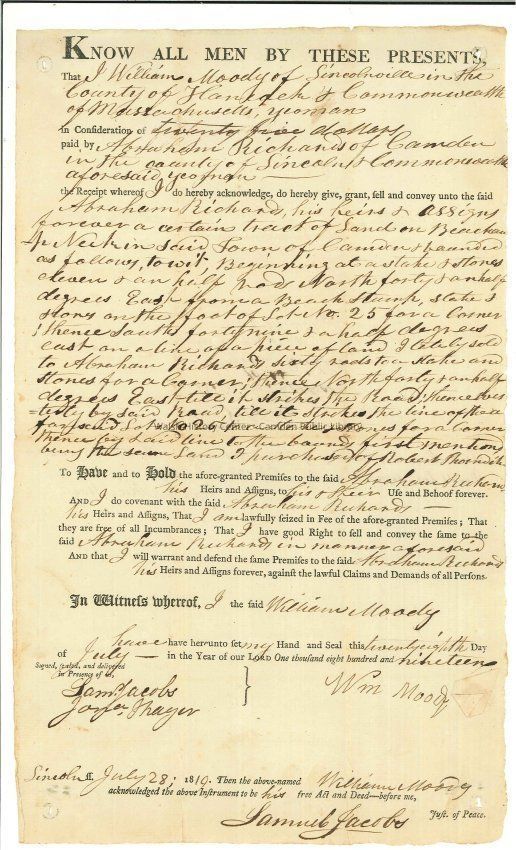 KNOW ALL MEN BY THESE PRESENTS,
That I William Moody of Lincolnville in the
County of Hancock & Commonwealth
of Massachusetts, yeoman
In Consideration of twenty five dollars
paid by Abraham Richards of Camden
in the county of Lincoln & Commonwealth
aforesaid yeoman
the Receipt whereof I do hereby acknowledge, do hereby give, grant, sell and convey unto the said
Abraham Richards, his heirs & assigns
forever a certain tract of Land on Beacham
Neck in said Town of Camden & bounded
as follows, to wit, Beginning at a stake & stones
eleven & an half rods North forty & an half
degrees East from a Beach Stump, stake &
stones on the foot of Lot No. 25 for a Corner
thence South forty nine & a half degrees
east on a line of a piece of land I lately sold
to Abraham Richards sixty rods to a stake and
stones for a corner; thence North forty & an half
degrees East till it strikes the Road; thence wes-
=terly by said Road, till it strikes the line of the a
foresaid Lot No 25 stones for a Corner
thence by said line to the bounds first mention'd
being the same Land I purchased of Robert Thorndik
Walsh History Center - Camden Public Library
To Have and to Hold the afore-granted Premises to the said Abraham Richards
his Heirs and Assigns, to his & their Use and Behoof forever.
AND I do covenant with the said Abraham Richards
his Heirs and Assigns, That I am lawfully seized in Fee of the afore-granted Premises; That
they are free of all Incumbrances; That I have good Right to sell and convey the same to the
said Abraham Richards in manner aforesaid
AND that I will warrant and defend the same Premises to the said Abraham Richards
his Heirs and Assigns forever, against the lawful Claims and Demands of all Persons.
In Witness whereof, I the said William Moody
have have hereunto set my Hand and Seal this twenty eighth Day
of July in the Year of our LORD One thousand eight hundred and nineteen
Signed, sealed, and delivered
in Presence of us,
Saml Jacobs
Thayer
Wm Moody
Lincoln ss. July 28, 1819. Then the above-named William Moody
acknowledged the above Instrument to be his free Act and Deed—before me,
Samuel Jacobs Just. of Peace.